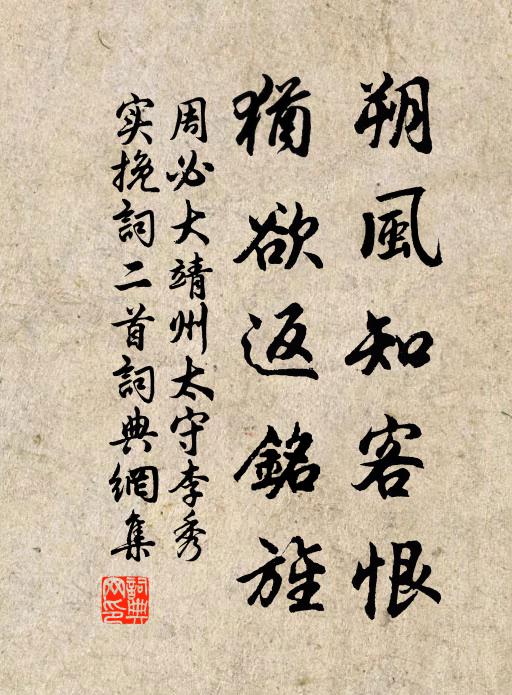 朔風知客恨
猶欲返銘旌
周必大靖州太守李秀
实挽詞二首詞典網集
詞典网印